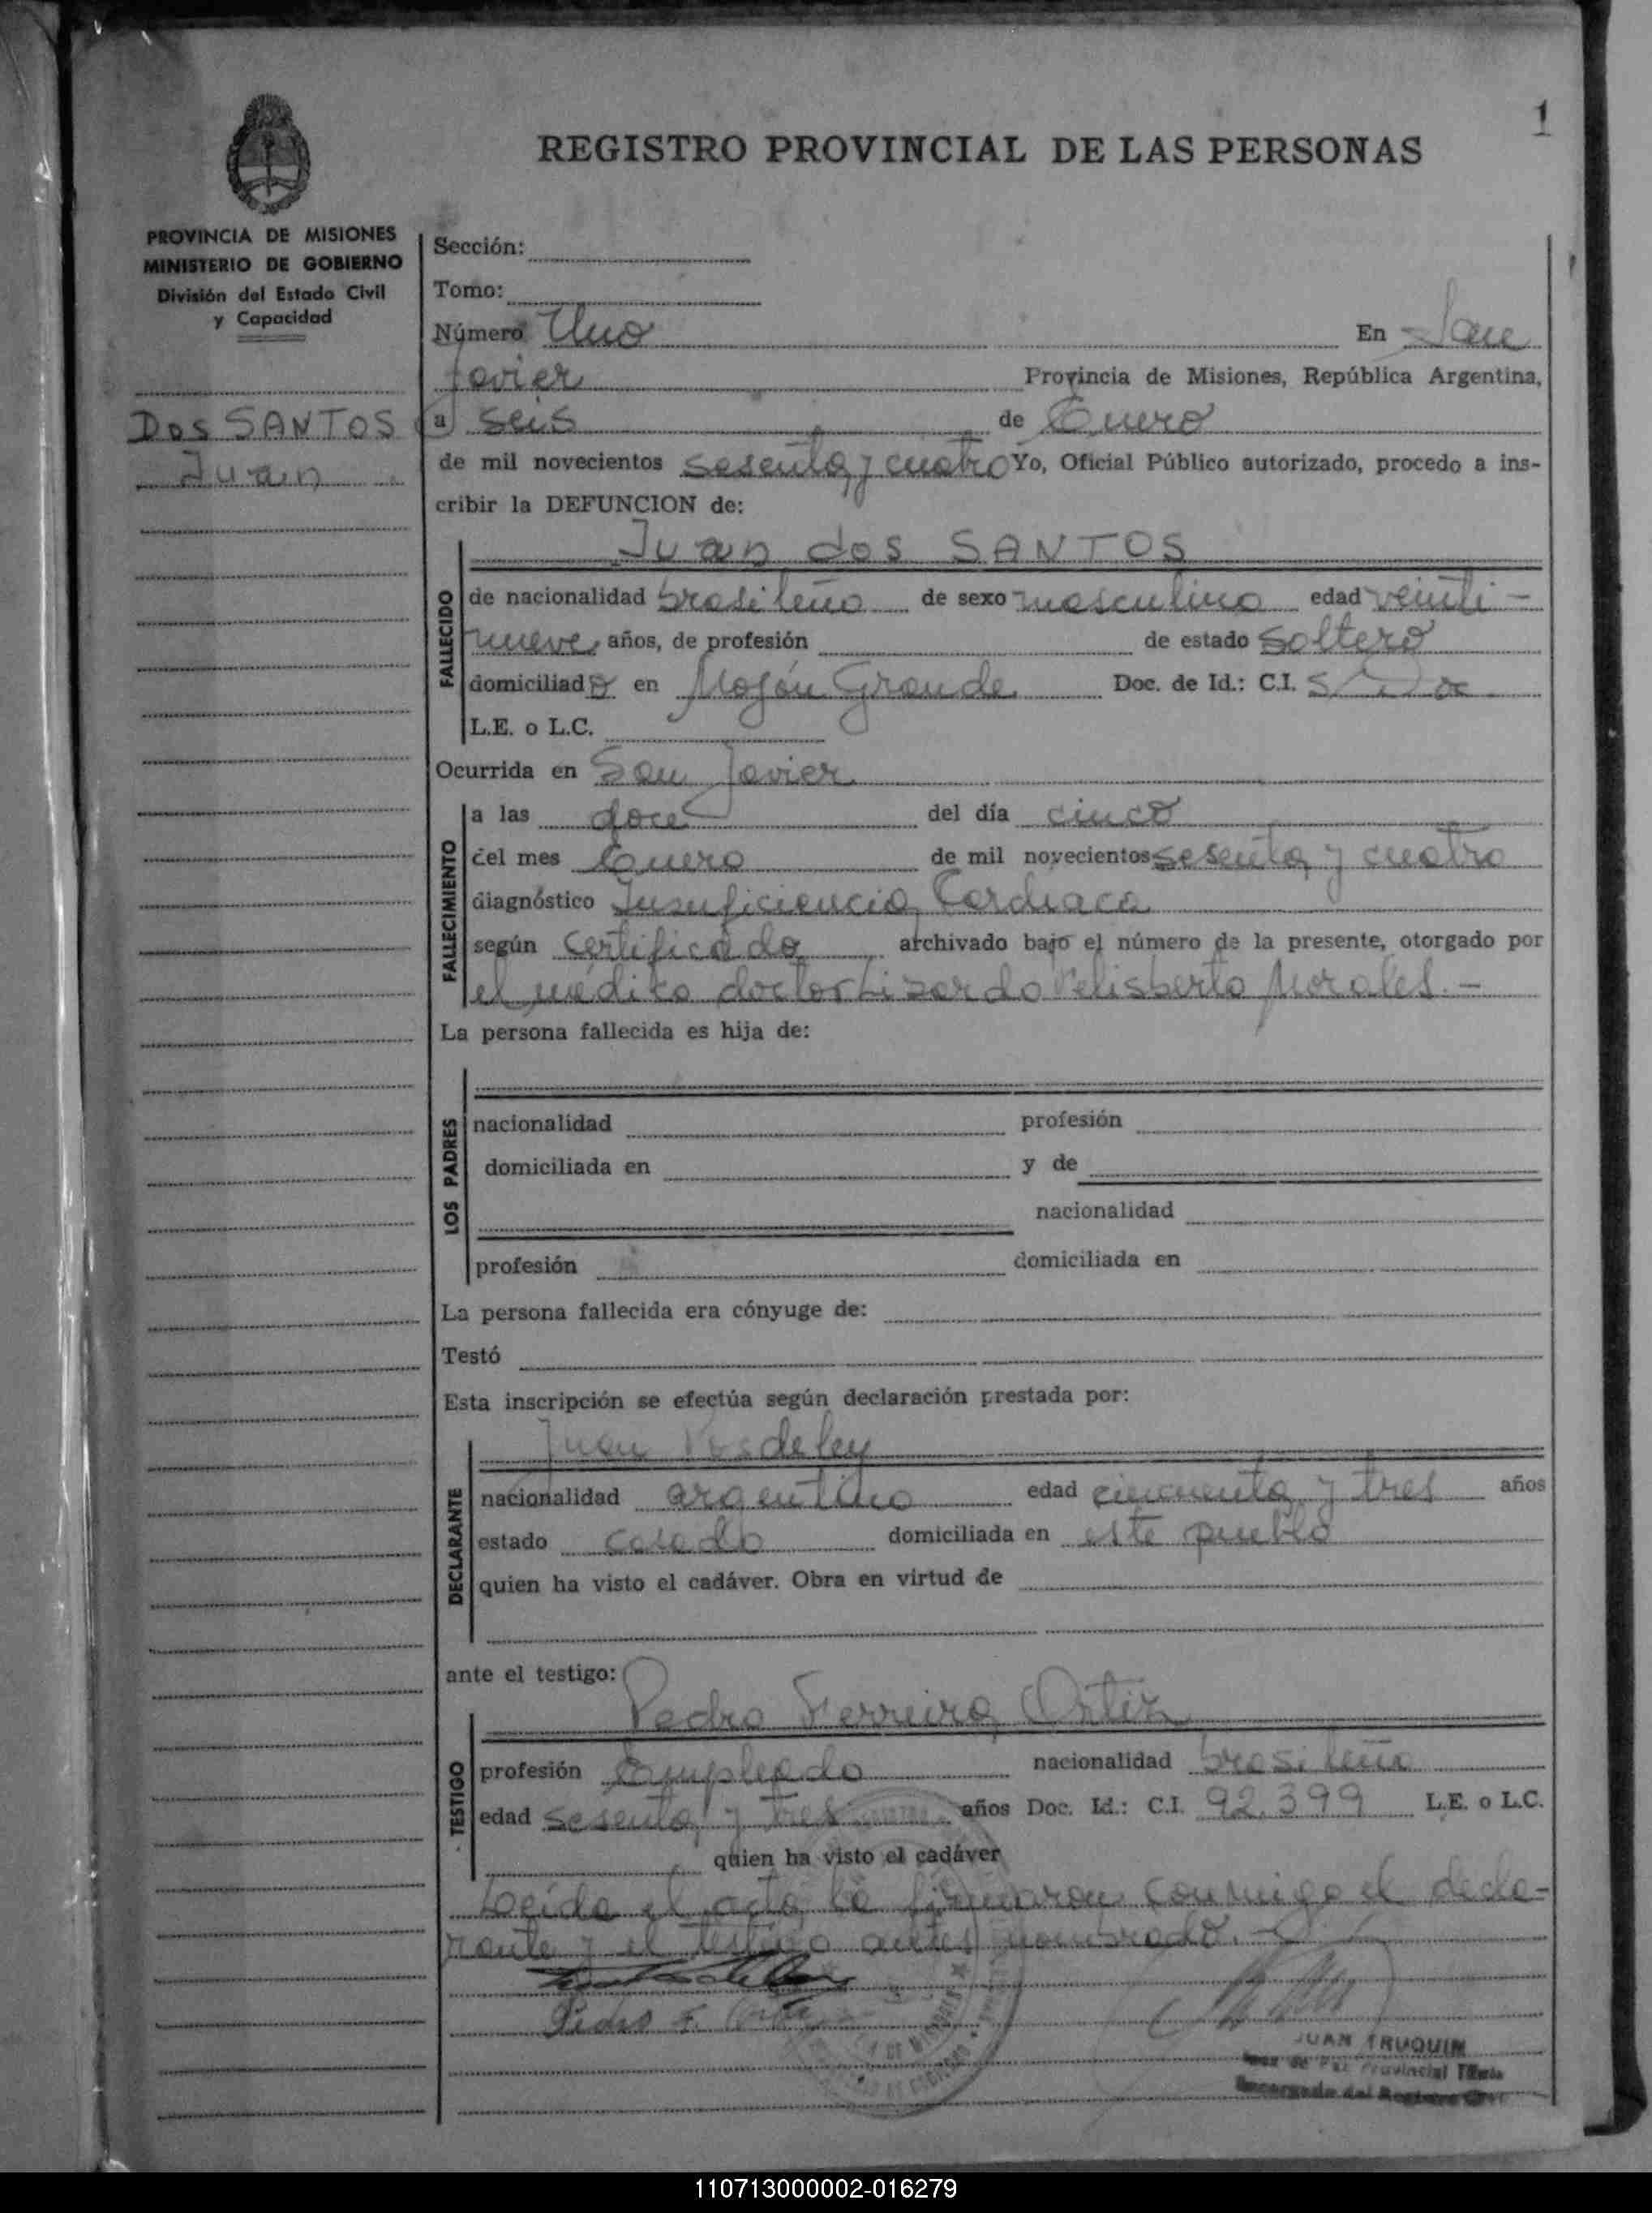 1
REGISTRO PROVINCIAL DE LAS PERSONAS
PROVINCIA DE MISIONES
MINISTERIO DE GOBIERNO
División del Estado Civil
y Capacidad
DOS SANTOS
Juan
Sección:
Tomo:
Número Uno En San
Javier Provincia de Misiones, República Argentina,
a seis de Enero
de mil novecientos sesenta y cuatro Yo, Oficial Público autorizado, procedo a ins-
cribir la DEFUNCION de:
Juan dos SANTOS
FALLECIDO
de nacionalidad brasileño de sexo masculino edad veinti-
nueve años, de profesión de estado soltero
domiciliado en Mojón Grande Doc. de Id.: C.I.
L.E. o L.C.
Ocurrida en San Javier
FALLECIMIENTO
a las doce del día cinco
del mes Enero de mil novecientos sesenta y cuatro
diagnóstico Insuficiencia Cardiaca
según certificado archivado bajo el número de la presente, otorgado por
el médico doctor Lizardo Felisberto Morales.-
La persona fallecida es hija de:
LOS PADRES
nacionalidad profesión
domiciliada en y de
nacionalidad
profesión domiciliada en
La persona fallecida era cónyuge de:
Testó
Esta inscripción se efectúa según declaración prestada por:
Juan
DECLARANTE
nacionalidad argentino edad cincuenta y tres años
estado casado domiciliada en este pueblo
quien ha visto el cadáver. Obra en virtud de
ante el testigo:
Pedro Ferreira Ortiz
TESTIGO
profesión Empleado nacionalidad brasileña
edad sesenta y tres años Doc. Id.: C.I. 92.399 L.E. o L.C.
quien ha visto el cadáver
Leida el acta la firmaron conmigo el decla-
rante y el testigo antes nombrado.-
Pedro F. Ortiz
JUAN TRUQUIN
Juez de Paz Provincial Titular
Encargado del Registro Civil
110713000002-016279